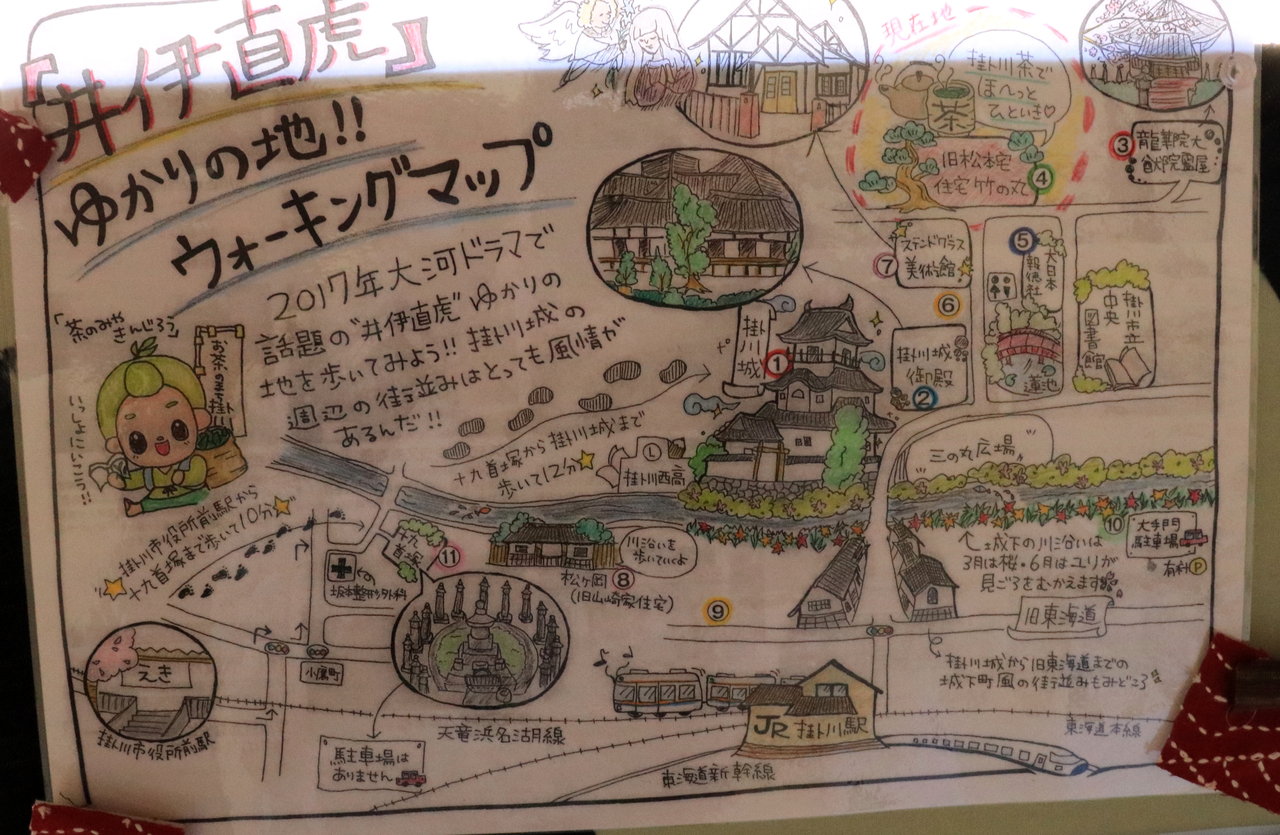 『井伊直虎』
ゆかりの地!!
ウォーキングマップ
2017年大河ドラマで
話題の"井伊直虎"ゆかりの
地を歩いてみよう!! 掛川城の
周辺の街並みはとっても風情が
あるんだ!!
「茶のみや
きんじろう」
お茶のまち掛川
いっしょにいこう!!
現在地
掛川茶で
ほ〜っと
ひといき♡
茶
旧松本宅
住宅 竹の丸
④
③
龍華院大
猷院靈屋
ステンドグラス
美術館
⑦
⑥
⑤
大日本
報徳社
蓮池
掛川市立
中央図書館
掛川城
①
掛川城
御殿
②
三の丸広場
十九首塚から掛川城まで
歩いて12分
掛川西高
掛川市役所前駅から
十九首塚まで歩いて10分
十九
首塚
⑪
坂本整形外科
松ヶ岡⑧
(旧山崎家住宅)
川沿いを
歩いていくよ
⑨
⑩
大手門
駐車場
有料Ⓟ
城下の川沿いは
3月は桜・6月はユリが
見ごろをむかえます
旧東海道
掛川城から旧東海道までの
城下町風の街並みもみどころ
えき
掛川市役所前駅
小鷹町
駐車場は
ありません
天竜浜名湖線
JR掛川駅
東海道本線
東海道新幹線